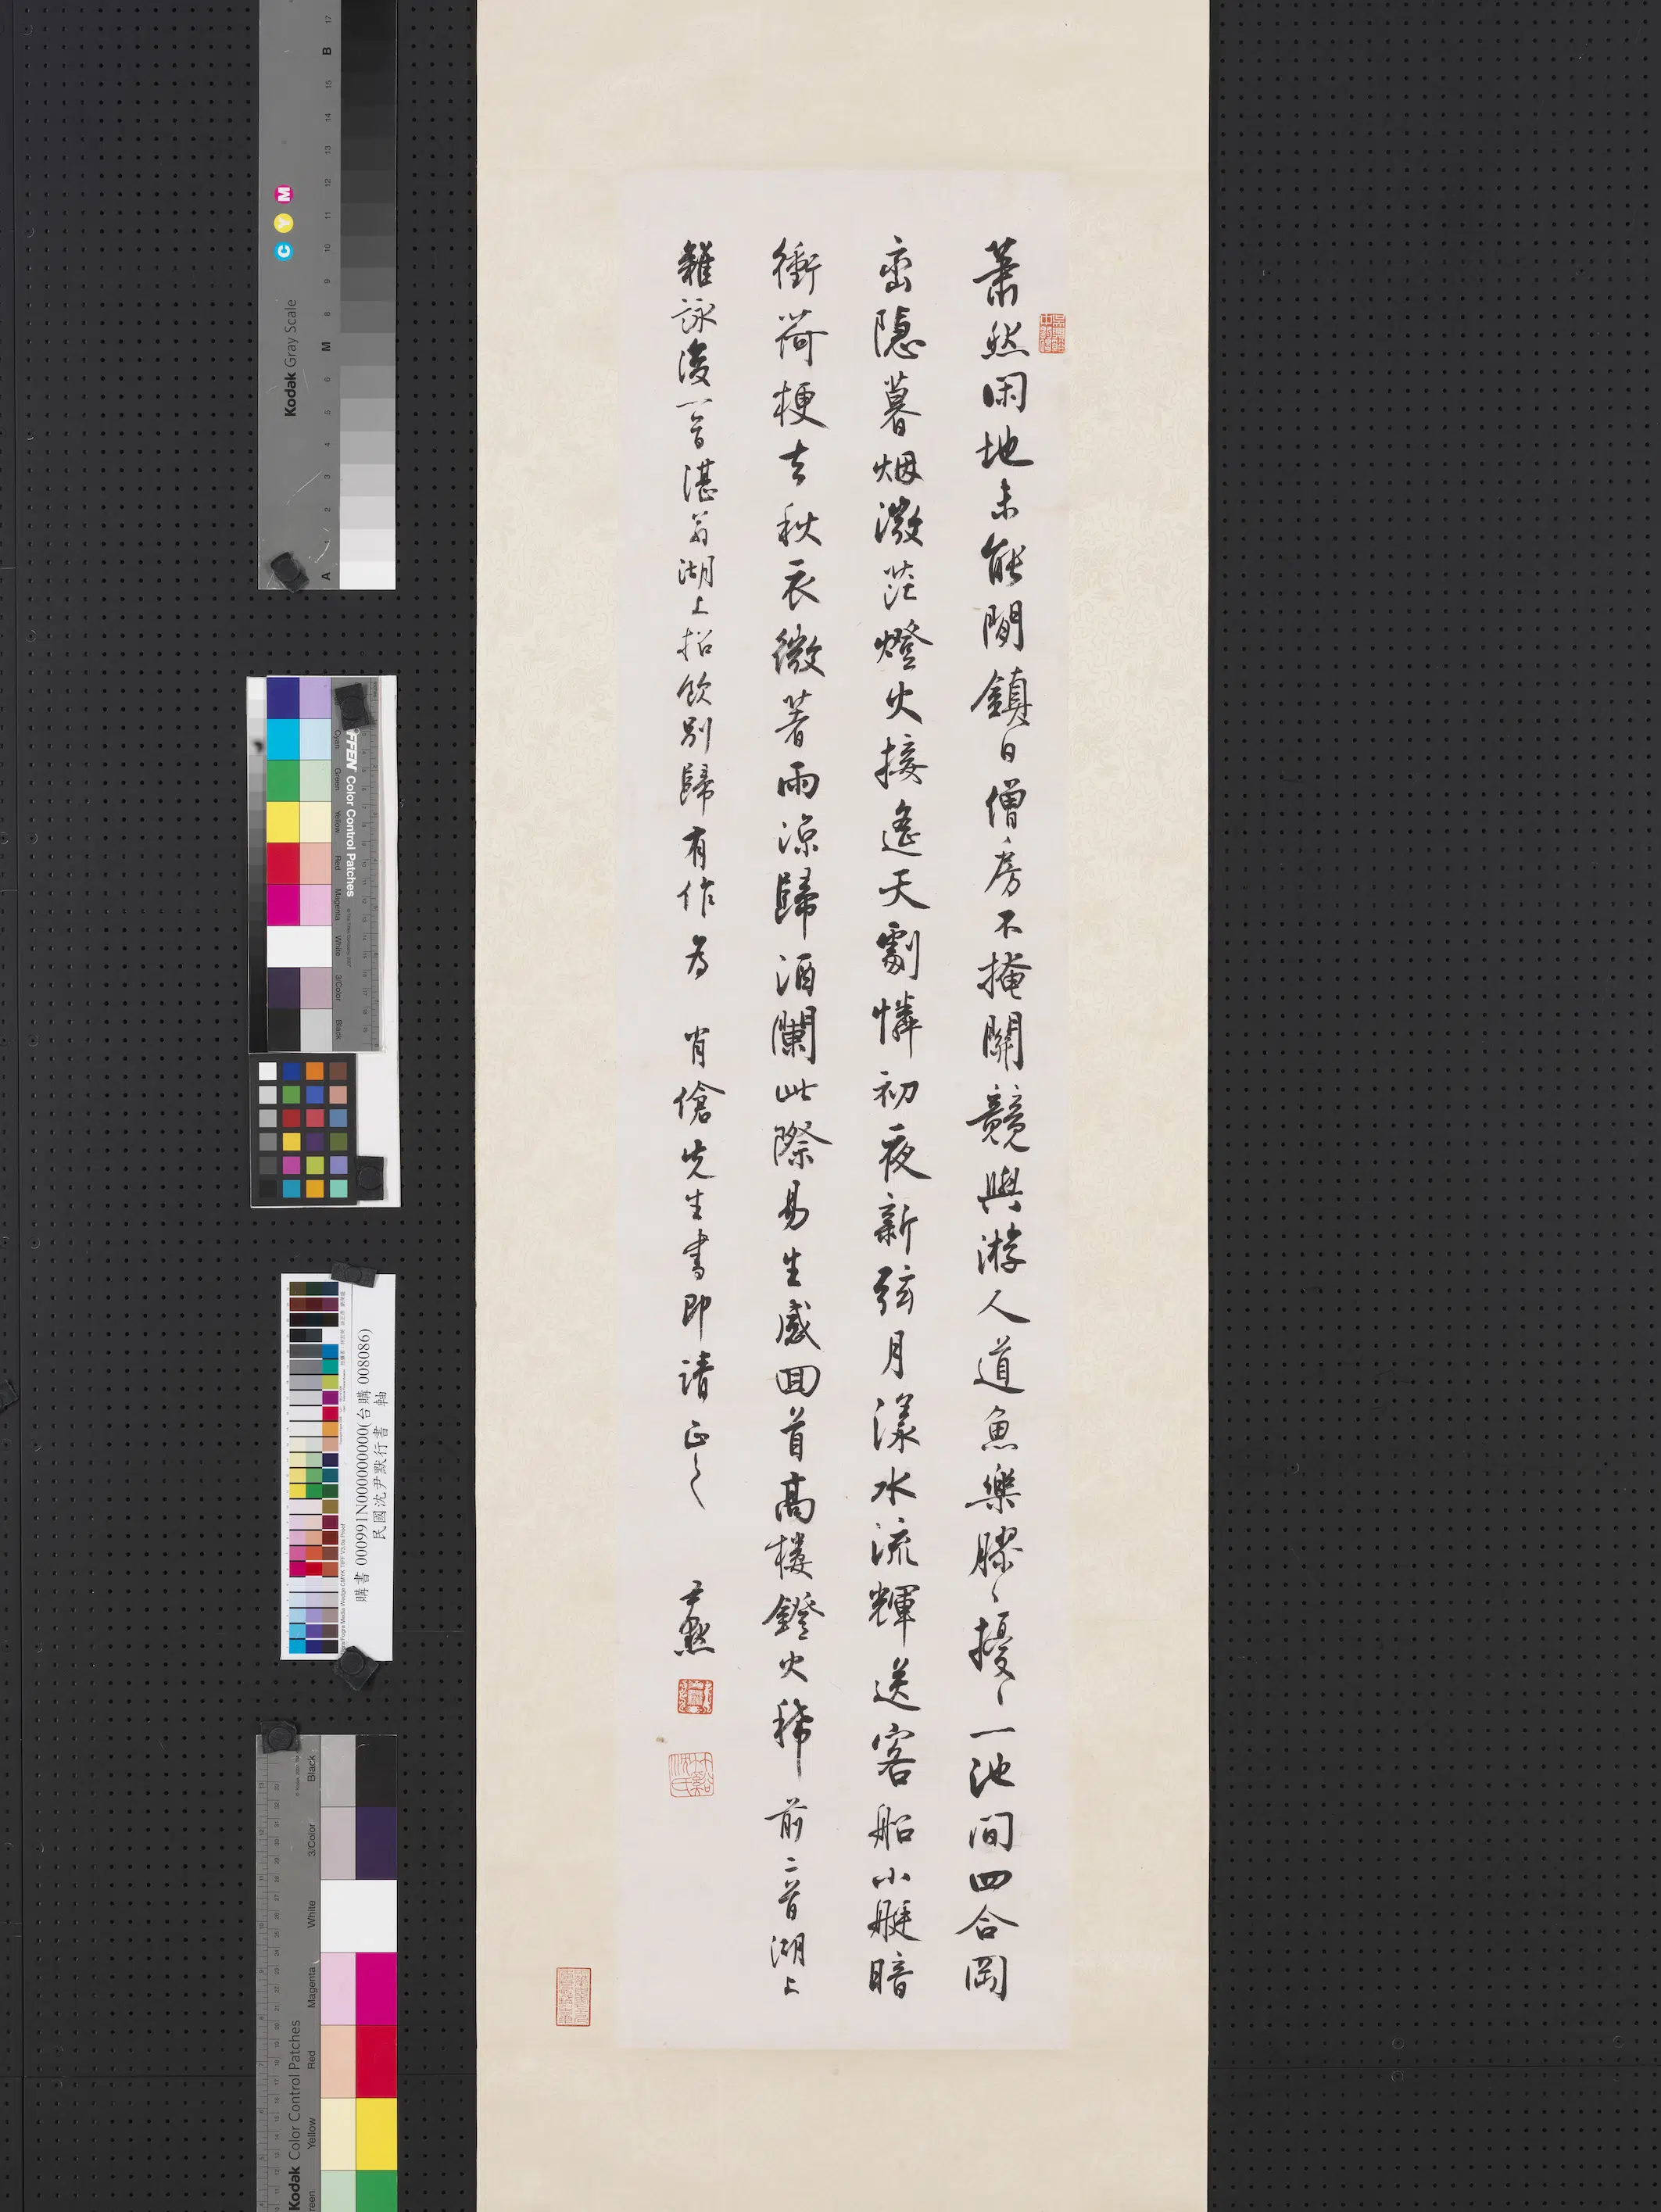 蕭然閑地未能閒鎮日僧房不掩關競與游人道魚樂膠〻擾〻一池間四合岡
巒隱暮烟微茫燈火接遙天劇憐初夜新弦月漾水流輝送客船小艇暗
衝荷梗去秋衣微著雨涼歸酒闌此際易生感回首高樓鐙火稀前二首湖上
雜詠後一首湛翁湖上招飲別歸有作為 肖傖先生書即請正之 尹默
竹谿沈氏
購書 000991N000000000(台購 008086)
民國沈尹默行書 軸
Kodak Gray Scale
C Y M
A 1 2 3 4 5 6 M 8 9 10 11 12 13 14 15 B 17
TIFFEN Color Control Patches
Cyan Green Yellow Red Magenta White 3/Color Black
Kodak Color Control Patches
Black 3/Color White Magenta Red Yellow Green